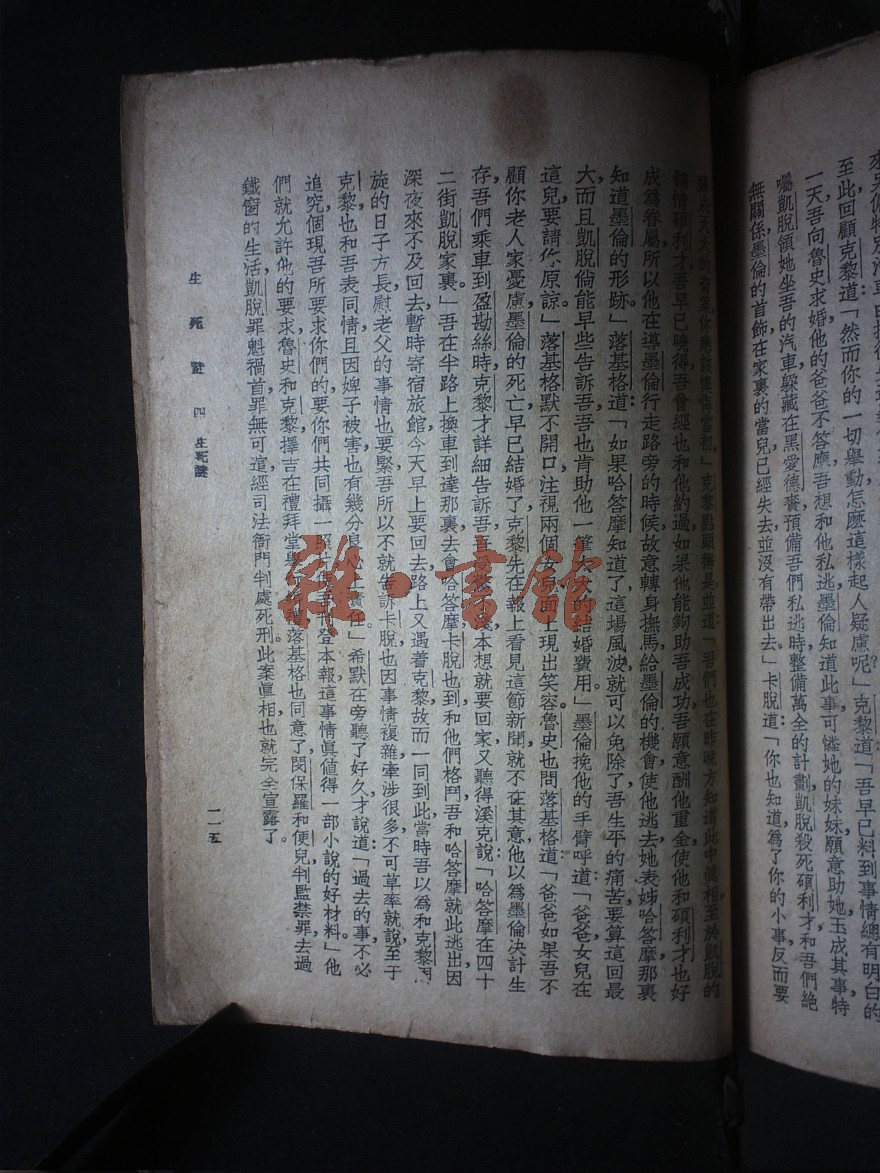 來另僱特別汽車由
至此回顧克黎道：「然而你的一切舉動怎麽這樣起人疑慮呢？」克黎道：「吾早已料到事情總有明白的
一天，吾向魯史求婚，他的爸爸不答應，吾想和他私逃，墨倫知道此事，可憐她的妹妹，願意助她玉成其事，特
囑凱脫領她坐吾的汽車，躱藏在黑愛德賚，預備吾們私逃時整備萬全的計劃，凱脫殺死碩利才，和吾們絶
無關係，墨倫的首飾，在家裏的當兒，已經失去，並沒有帶出去。」卡脫道：「你也知道爲了你的小事，反而要
成天大的奇案，你應該懊悔當初。」克黎點頭稱是，並道：「吾們也在昨晚方知道此中眞相，至於凱脫的
鍾情碩利才，吾早已曉得，吾曾經也和他約過，如果他能夠助吾成功，吾願意酬他重金，使他和碩利才也好
成爲眷屬，所以他在導墨倫行走路旁的時候，故意轉身撫馬，給墨倫的機會，使他逃去她表姊哈答摩那裏，
知道墨倫的形跡。」落基格道：「如果哈答摩知道了這場風波，就可以免除了吾生平的痛苦，要算這回最
大，而且凱脫倘能早些告訴吾，吾也肯助他一筆大大的結婚費用。」墨倫挽他的手臂呼道：「爸爸，女兒在
這兒，要請你原諒。」落基格默不開口，注視兩個女兒，面上現出笑容，魯史也問落基格道：「爸爸，如果吾不
顧你老人家憂慮墨倫的死亡，早已結婚了，克黎先在報上看見這節新聞，就不在其意，他以爲墨倫決計生
存，吾們乘車到盈勘絲時，克黎才詳細告訴吾，吾憂愁不淺，本想就要回家，又聽得溪克說：「哈答摩在四十
二街凱脫家裏。」吾在半路上換車，到達那裏去會哈答摩，卡脫也到，和他們格鬥，吾和哈答摩就此逃出，因
深夜來不及回去，暫時寄宿旅館，今天早上要回去，路上又遇着克黎，故而一同到此，當時吾以爲和克黎周
旋的日子方長，慰老父的事情也要緊，吾所以不就告訴卡脫，也因事情複雜，牽涉很多，不可草率就說，至于
克黎也和吾表同情，且因婢子被害，也有幾分良心上責任。」希默在旁聽了好久，才說道：「過去的事，不必
追究個現，吾所要求你們的，要你們共同攝一照片，刊登本報，這事情眞値得一部小說的好材料。」他
們就允許他的要求，魯史和克黎，擇吉在禮拜堂舉行婚禮，落基格也同意了，閔保羅和便兒判監禁罪，去過
鐵窗的生活，凱脫罪魁禍首，罪無可逭，經司法衙門判處死刑，此案眞相，也就完全宣露了。
生死謎　四　生死謎
一一五